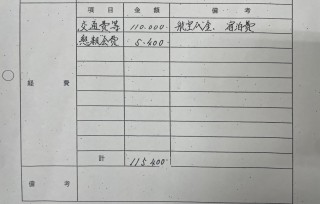 項 目 金 額 備 考
交通費等 110.000- 航空代金、宿泊費
懇親会費 5.400-
経 費
計 115.400-
備 考